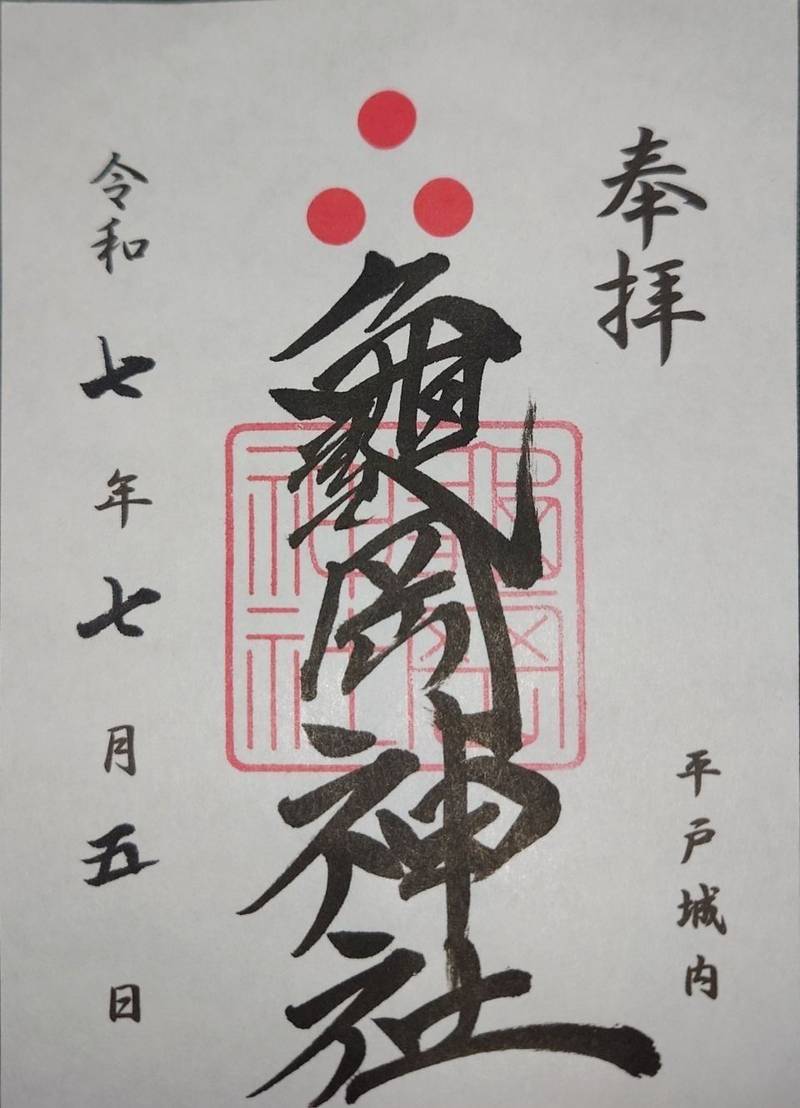 奉拝
平戸城内
亀岡神社
令和七年七月五日